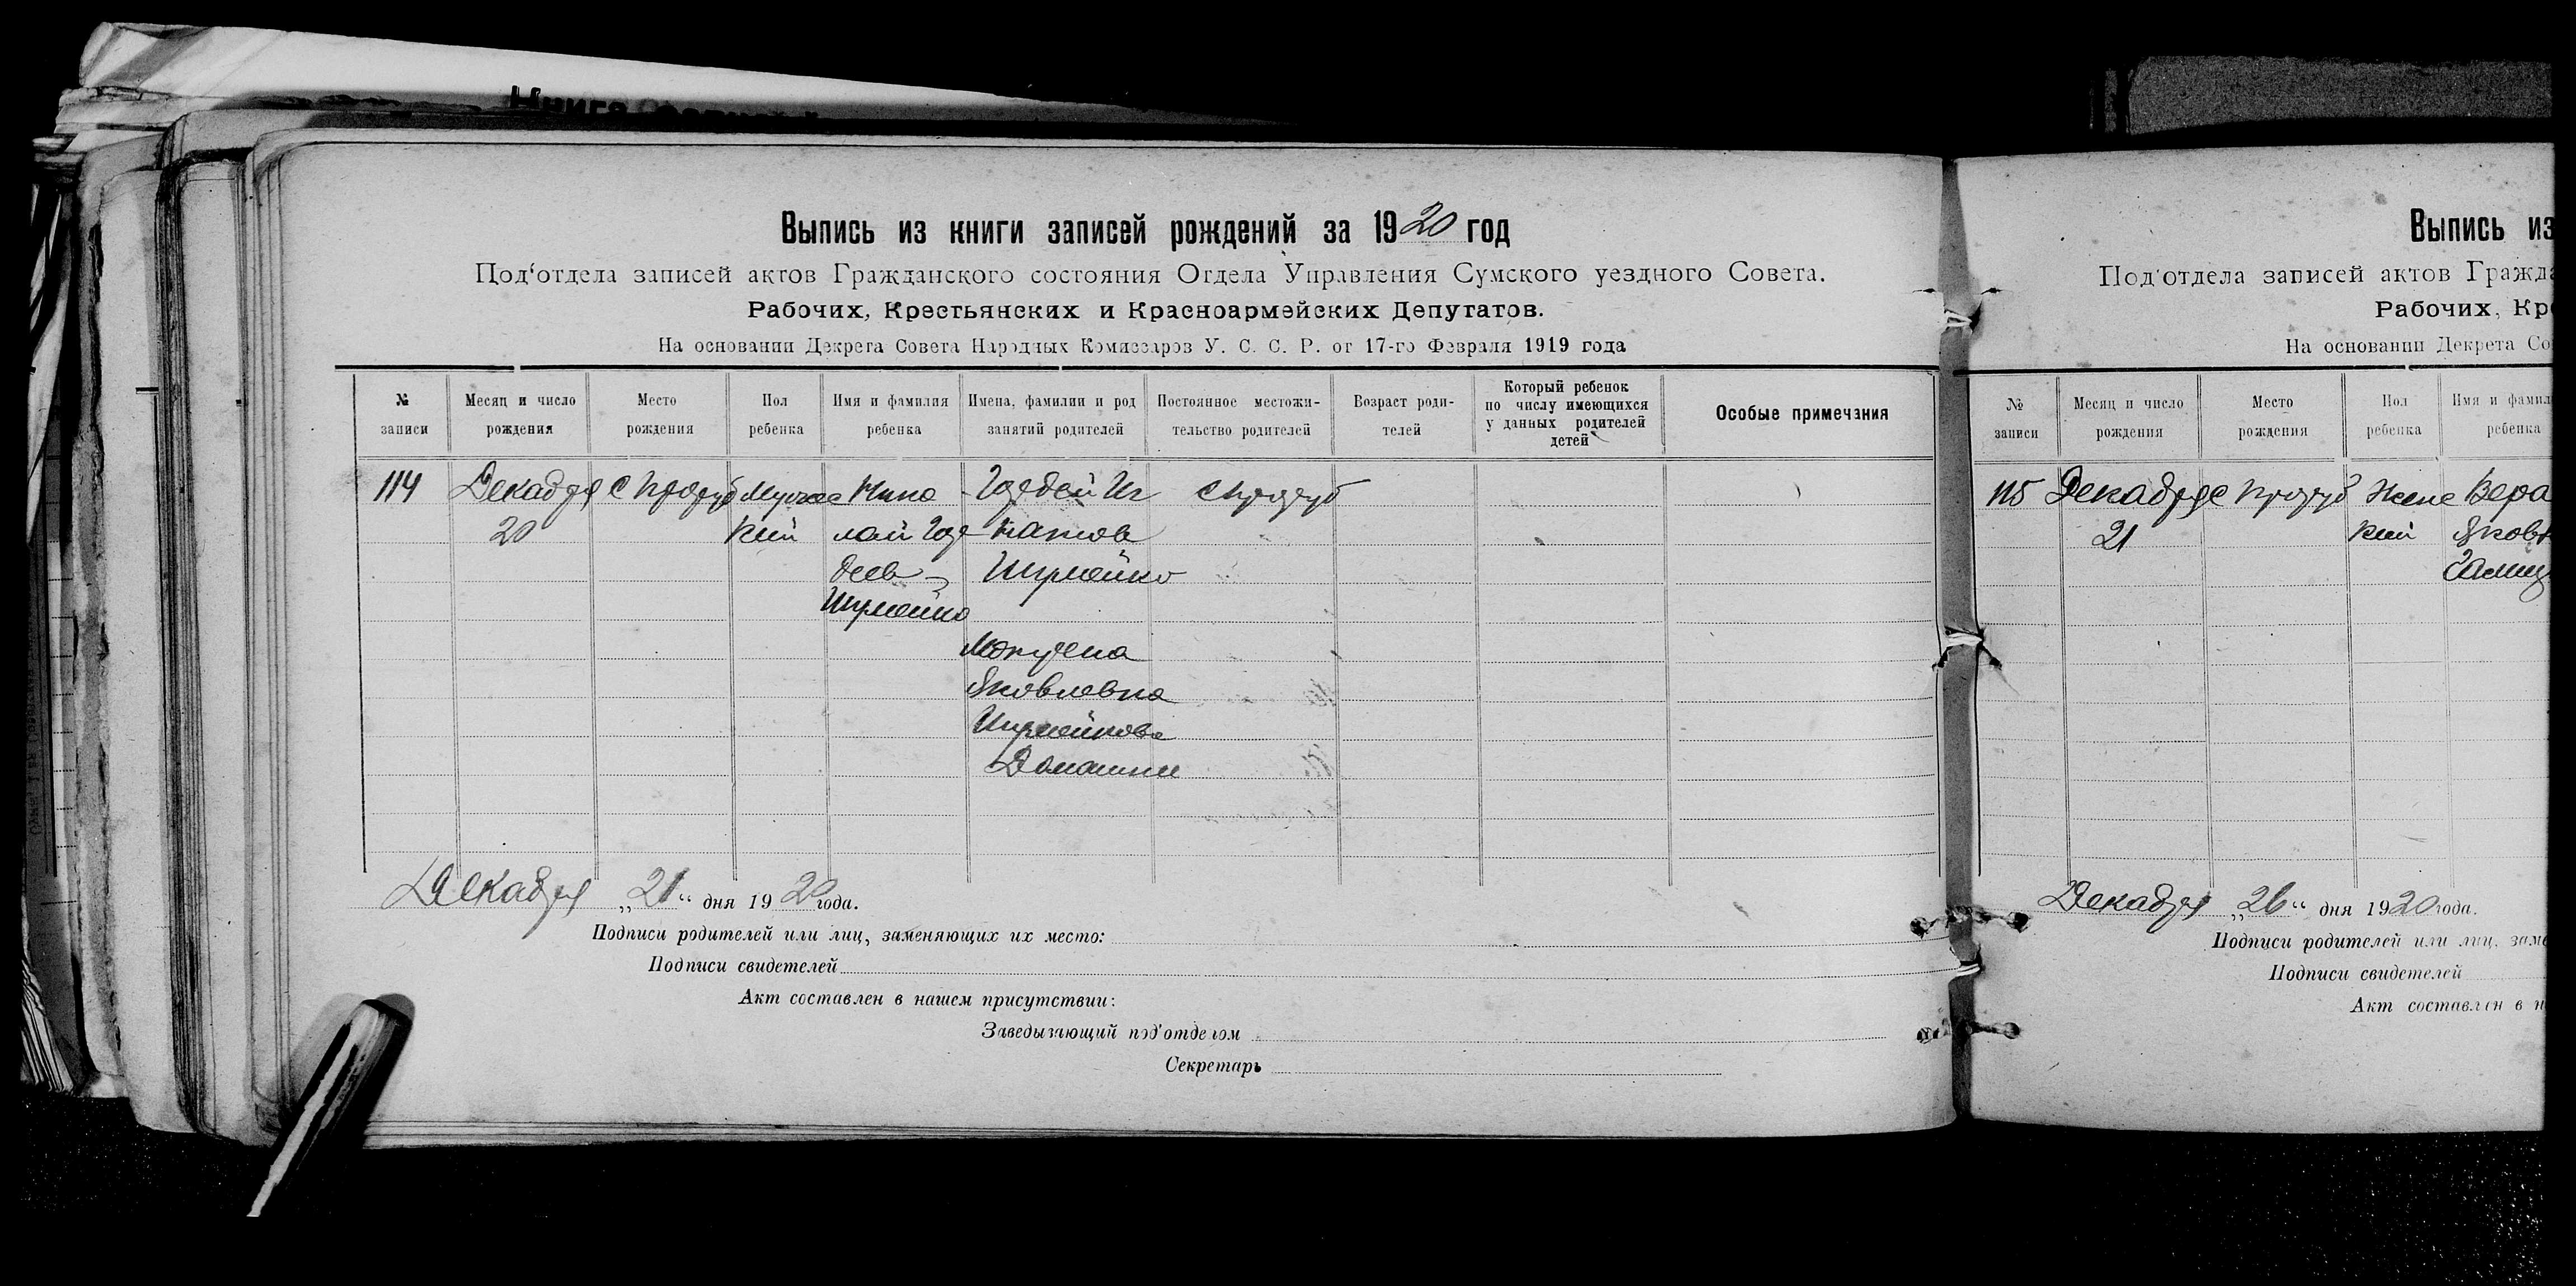 Книга
Выпись из книги записей рождений за 1920 год
Под'отдела записей актов Гражданского состояния Отдела Управления Сумского уездного Совета.
Рабочих, Крестьянских и Красноармейских Депутатов.
На основании Декрета Совета Народных Комиссаров У. С. С. Р. от 17-го Февраля 1919 года
№ записи
Месяц и число рождения
Место рождения
Пол ребенка
Имя и фамилия ребенка
Имена, фамилии и род занятий родителей
Постоянное местожительство родителей
Возраст родителей
Который ребенок по числу имеющихся у данных родителей детей
Особые примечания
114
Декабря
20
с
Мужес
кий
Нико
лай
Шумейко
Иг
натов
Шумейко
Яковлевна
Шумейкова
с
Декабря „21“ дня 1920 года.
Подписи родителей или лиц, заменяющих их место:
Подписи свидетелей
Акт составлен в нашем присутствии:
Заведывающий под'отделом
Секретарь
Выпись из
Под'отдела записей актов Гражда
Рабочих, Кре
На основании Декрета Со
№ записи
Месяц и число рождения
Место рождения
Пол ребенка
Имя и фамил
ребенка
115
Декабря
21
с
Женс
кий
Вера
Яковл
Декабря „26“ дня 1920 года.
Подписи родителей или лиц, заме
Подписи свидетелей
Акт составлен в н